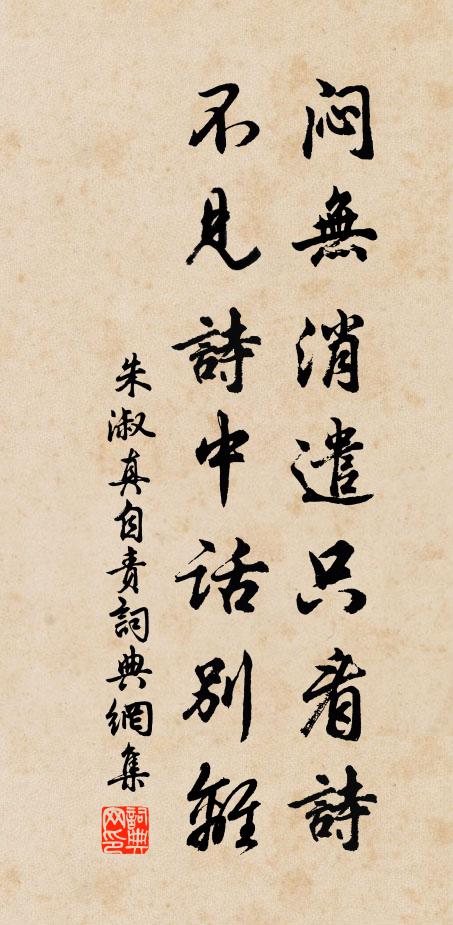 闷無消遣只看詩
不見詩中話別離
朱淑真自責詞典網集
詞典网印